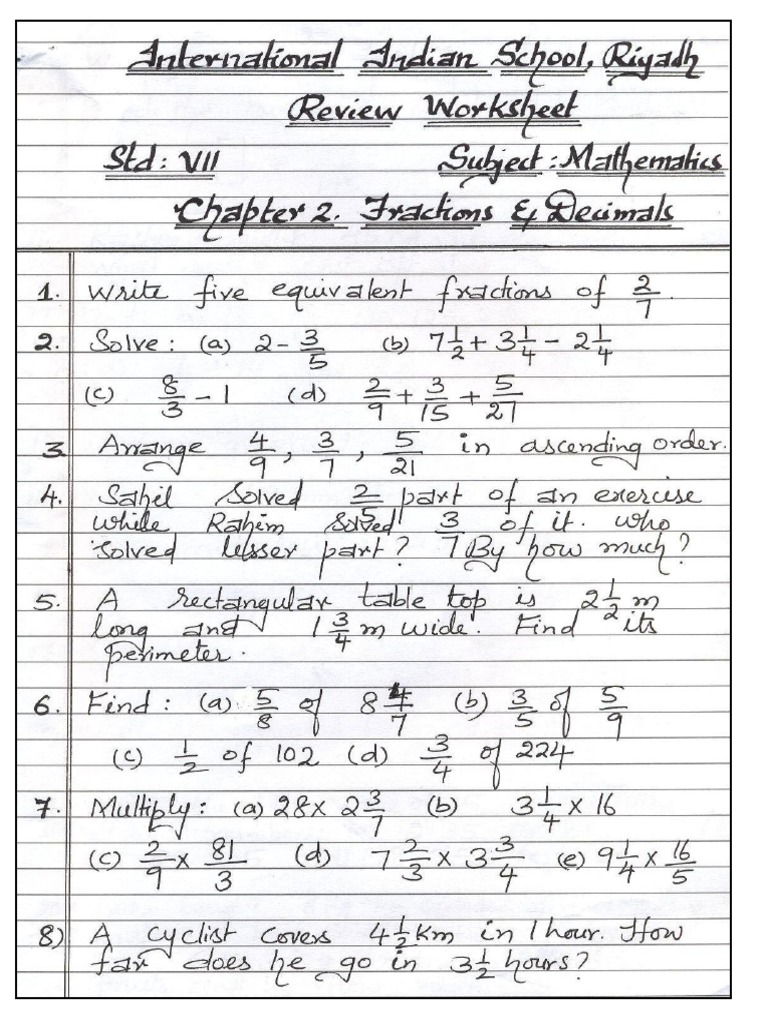 International Indian School, Riyadh
Review Worksheet
Std: VII Subject: Mathematics
Chapter 2. Fractions & Decimals
1. Write five equivalent fractions of 2/7.
2. Solve: (a) 2 - 3/5 (b) 7 1/2 + 3 1/4 - 2 1/4
(c) 8/3 - 1 (d) 2/9 + 3/15 + 5/27
3. Arrange 4/9, 3/7, 5/21 in ascending order.
4. Sahil solved 2/5 part of an exercise
while Rahim solved 3/7 of it. who
solved lesser part? By how much?
5. A rectangular table top is 2 1/2 m
long and 1 3/4 m wide. Find its
perimeter.
6. Find: (a) 5/8 of 8 4/7 (b) 3/5 of 5/9
(c) 1/2 of 102 (d) 3/4 of 224
7. Multiply: (a) 28 x 2 3/7 (b) 3 1/4 x 16
(c) 2/9 x 81/3 (d) 7 2/3 x 3 3/4 (e) 9 1/4 x 16/5
8) A cyclist covers 4 1/2 Km in 1 hour. How
far does he go in 3 1/2 hours?